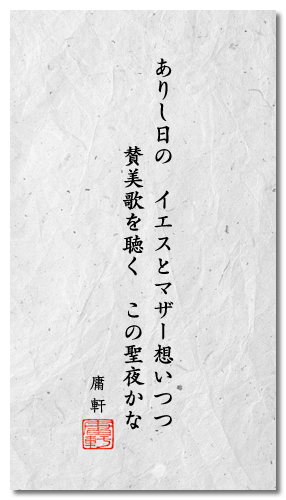 ありし日の　イエスとマザー想いつつ
賛美歌を聴く　この聖夜かな
庸軒